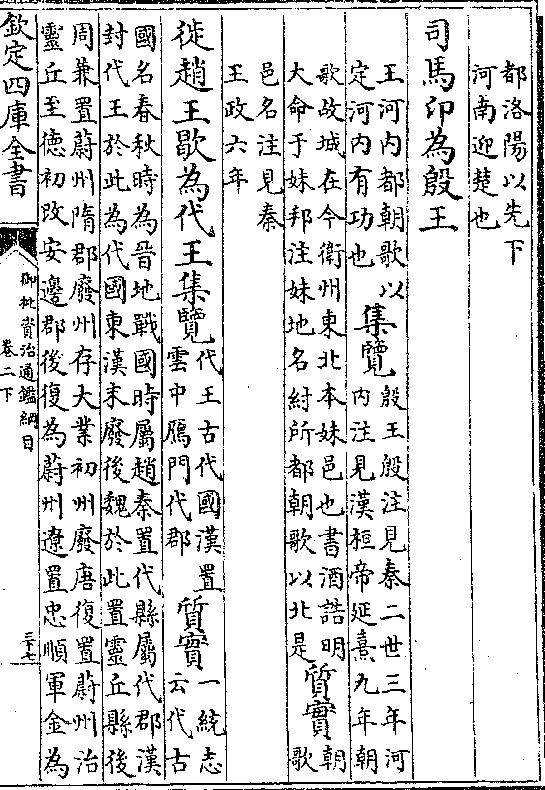 都洛陽以先下
河南迎楚也
司馬卬為殷王
王河内都朝歌以
定河内有功也
集覽
殷王殷注見秦二世三年河
内注見漢桓帝延熹九年朝
歌故城在今衛州東北本妹邑也書酒誥明
大命于妹邦注妹地名紂所都朝歌以北是
質實
朝
歌
邑名注見秦
王政六年
徙趙王歇為代王集覽
代王古代國漢置
雲中鴈門代郡
質實
一統志
云代古
國名春秋時為晉地戰國時屬趙秦置代縣屬代郡漢
封代王於此為代國東漢末廢後魏於此置靈丘縣後
周兼置蔚州隋郡廢州存大業初州廢唐復置蔚州治
靈丘至德初改安邊郡後復為蔚州遼置忠順軍金為
欽定四庫全書
御批資治通鑑綱目
卷二下
三十七